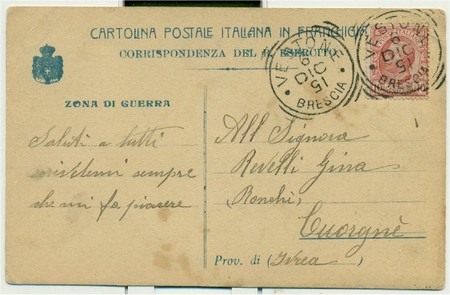 CARTOLINA POSTALE ITALIANA IN FRANCHIGIA
CORRISPONDENZA DEL R. ESERCITO
ZONA DI GUERRA
VESTONE
DIC
BRESCIA
VESTONE
DIC
BRESCIA
Saluti a tutti
scrivetemi sempre
che mi fa piacere
All Signora
Revelli Gina
(Ronchi)
Cuorgnè
Prov. di (Ivrea)